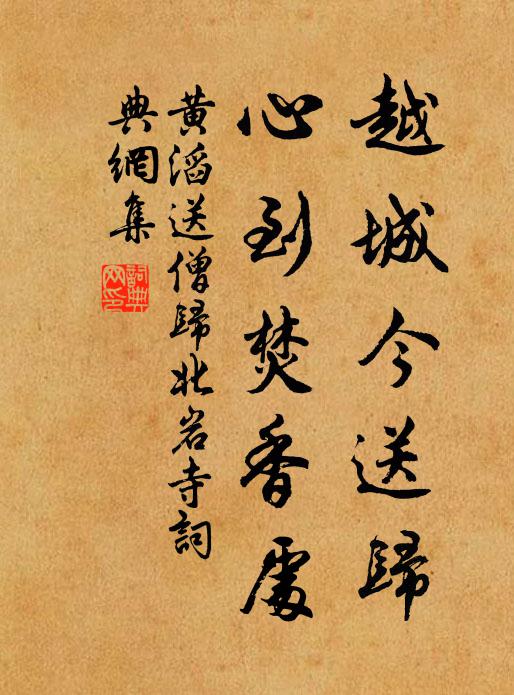 越城今送歸
心到焚香處
黄滔送僧歸北岩寺詞
典網集
詞典網印